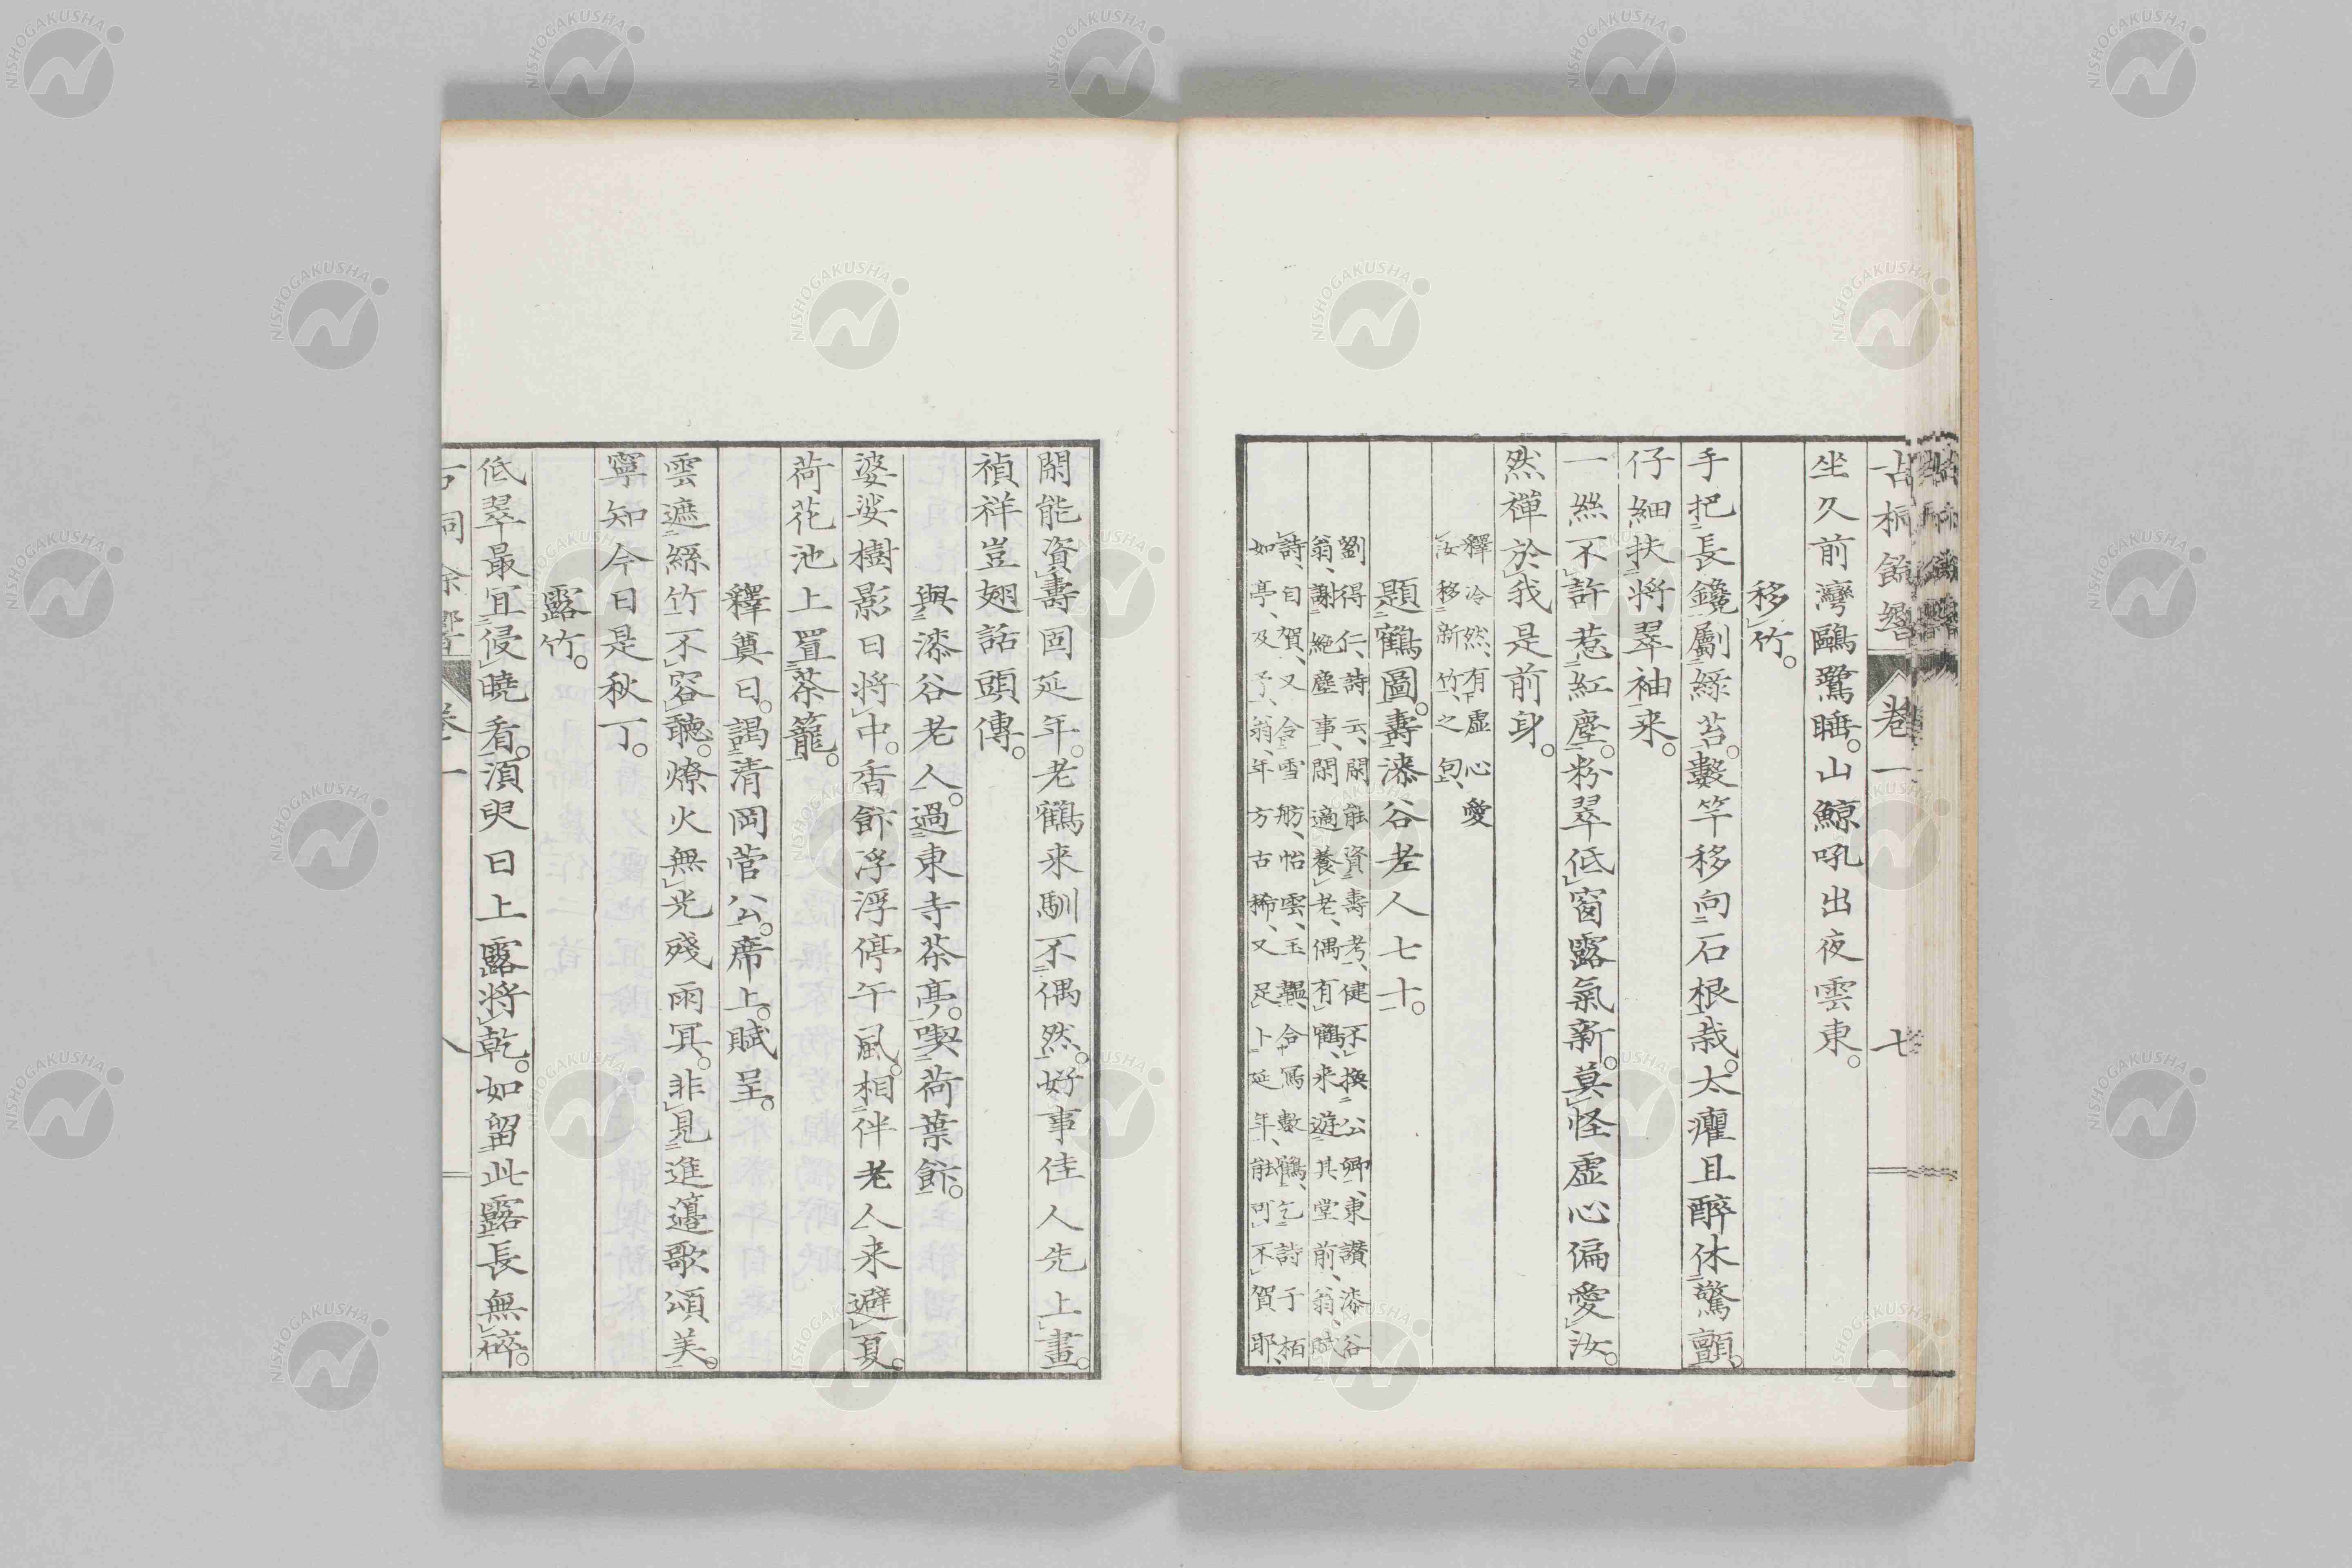 古桐餘響 卷一 七
坐久前灣鷗鷺睡。山鯨吼出夜雲東。
移竹。
手把長鑱劚綠苔。數竿移向石根栽。太癯且醉休驚顫。
仔細扶將翠袖来。
一絲不許惹紅塵。粉翠低窗露氣新。莫怪虛心偏愛汝。
然禪於我是前身。
釋冷然、有虛心愛
汝移新竹、之句、
題鶴圖。壽漆谷老人七十。
劉得仁、詩云、閑能資壽考、健不換公卿、東讚漆谷
翁、謝絕塵事、閑適養老、偶有鶴、来遊其堂前、翁、賦
詩、自賀、又令雪舫、怡雲、玉韞、合寫數鶴、乞詩于栢
如亭、及予、翁、年方古稀、又足卜延年、能可不賀耶、
閑能資壽固延年。老鶴来馴不偶然。好事佳人先上畫。
禎祥豈翅話頭傳。
與漆谷老人。過東寺茶亭。喫荷葉飰。
婆娑樹影日將中。香飰浮浮停午風。相伴老人来避夏。
荷花池上罝茶籠。
釋奠日。謁清岡菅公。席上。賦呈。
雲遮絲竹不容聽。燎火無光殘雨冥。非見進籩歌頌美。
寧知今日是秋丁。
露竹。
低翠最冝侵曉看。須臾日上露將乾。如留此露長無碎。
古桐餘響 卷一 八
NISHOGAKUSHA